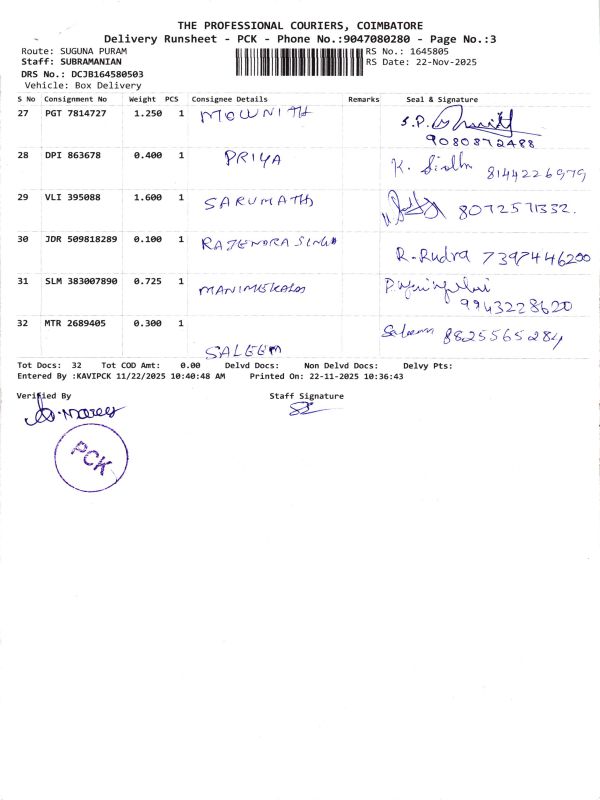 THE PROFESSIONAL COURIERS, COIMBATORE
Delivery Runsheet - PCK - Phone No.:9047080280 - Page No.:3
Route: SUGUNA PURAM RS No.: 1645805
Staff: SUBRAMANIAN RS Date: 22-Nov-2025
DRS No.: DCJB164580503
Vehicle: Box Delivery
S No Consignment No Weight PCS Consignee Details Remarks Seal & Signature
27 PGT 7814727 1.250 1 MOWNITH S.P.
9080872488
28 DPI 863678 0.400 1 PRIYA K. 8144226979
29 VLI 395088 1.600 1 SARUMATHI 8072571332.
30 JDR 509818289 0.100 1 RAJENDRA SINGH R-Rudra 7397446200
31 SLM 383007890 0.725 1 MANIMEKALAI
9943228620
32 MTR 2689405 0.300 1 SALEEM Saleem 8825565284
Tot Docs: 32 Tot COD Amt: 0.00 Delvd Docs: Non Delvd Docs: Delvy Pts:
Entered By :KAVIPCK 11/22/2025 10:40:48 AM Printed On: 22-11-2025 10:36:43
Verified By Staff Signature
PCK